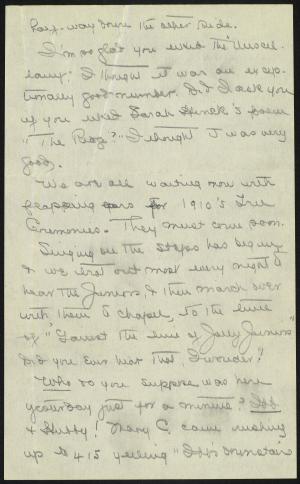 half-way down the other side.
I'm so glad you liked the "Miscel-
lany." I thought it was an excep-
tionally good number. Did I ask you
if you liked Sarah Hinck's poem
"The Bog?" I thought I was very
good.
We are all waiting now with
flapping ears for 1910's Tree
Ceremonies. They must come soon.
Singing on the steps has begun,
& we troll out most every night &
hear the Juniors, & then march over
with them to chapel, to the tune
of "Gainst the line of Jolly Juniors"
Did you ever hear that I wonder?
Who do you suppose was here
yesterday just for a minute?
& Hubby! Mary C. came rushing
up to 415 yelling